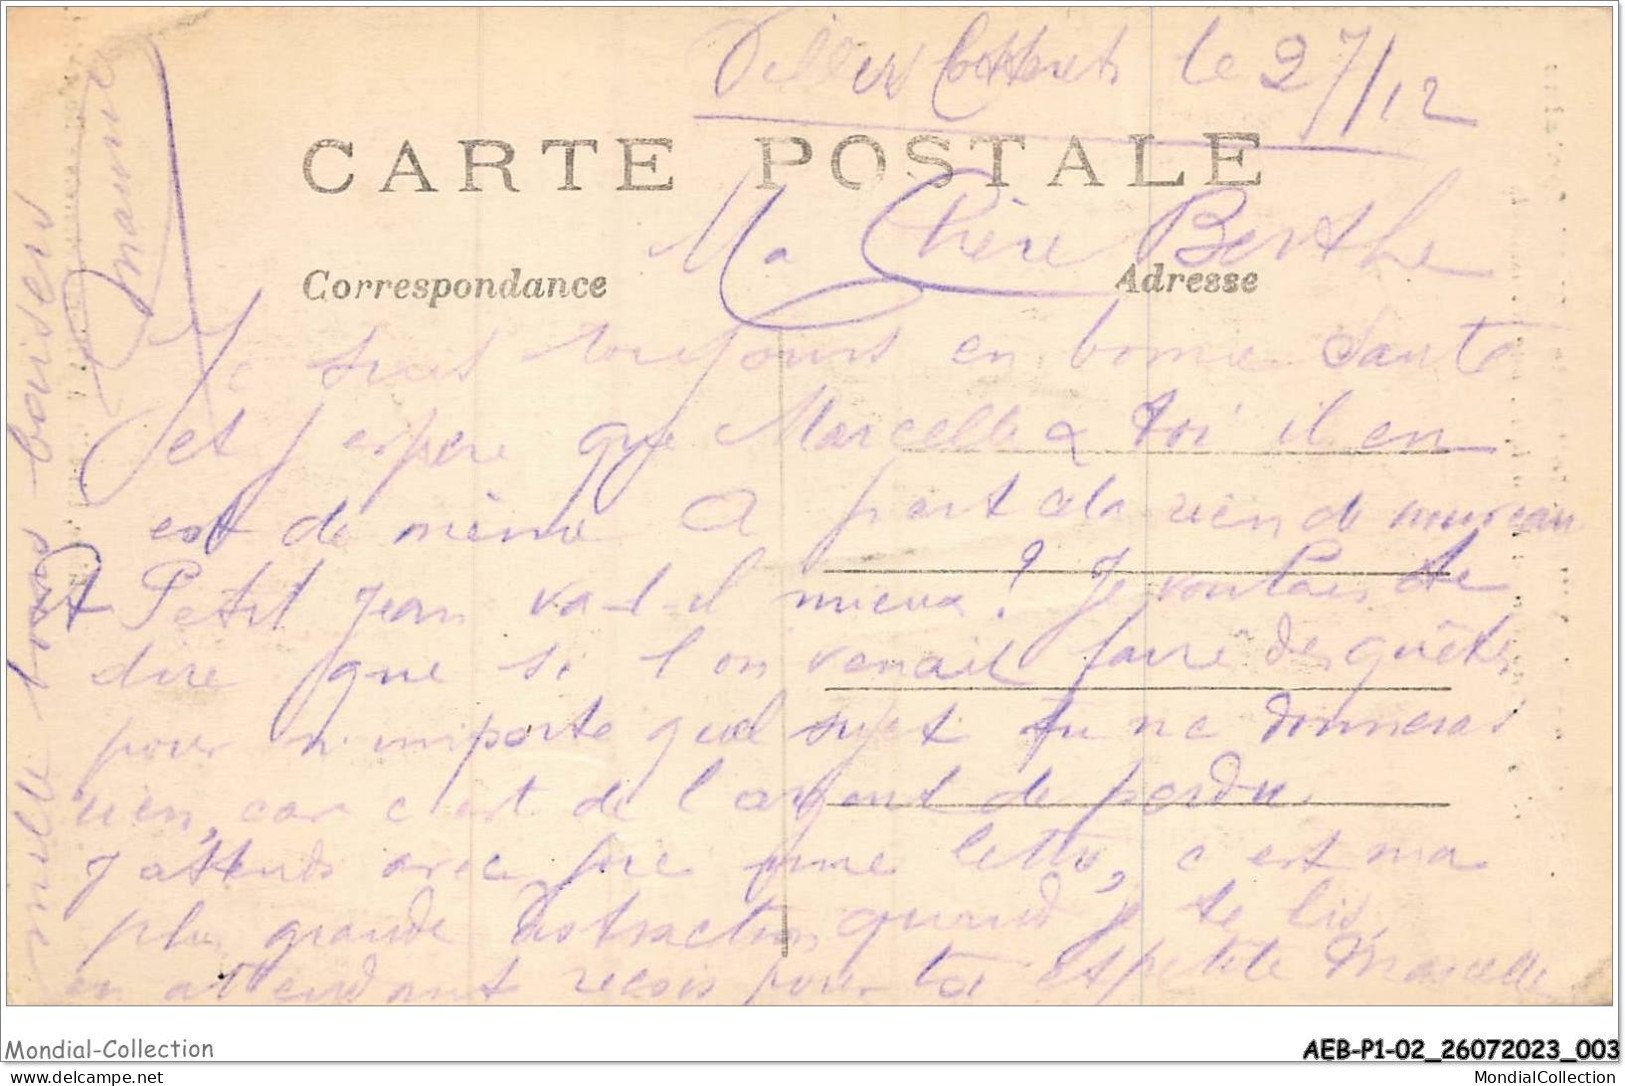 Villers Cotterets le 27/12
CARTE POSTALE
Ma Chère Berthe
Correspondance
Adresse
Je suis toujours en bonne Santé
et j espère que Marcelle & toi il en
est de même A part cela rien de nouveau
Petit Jean va-t-il mieux? Je voulais te
dire que si l on venait faire des quêtes
pour n importe quel sujet tu ne donneras
rien, car c est de l argent de perdu.
J attends avec joie une lettre, c est ma
plus grande distraction quand je te lis,
en attendant reçois pour toi et petite Marcelle
mille bons baisers
Mondial-Collection
AEB-P1-02_26072023_003
© delcampe.net
MondialCollection